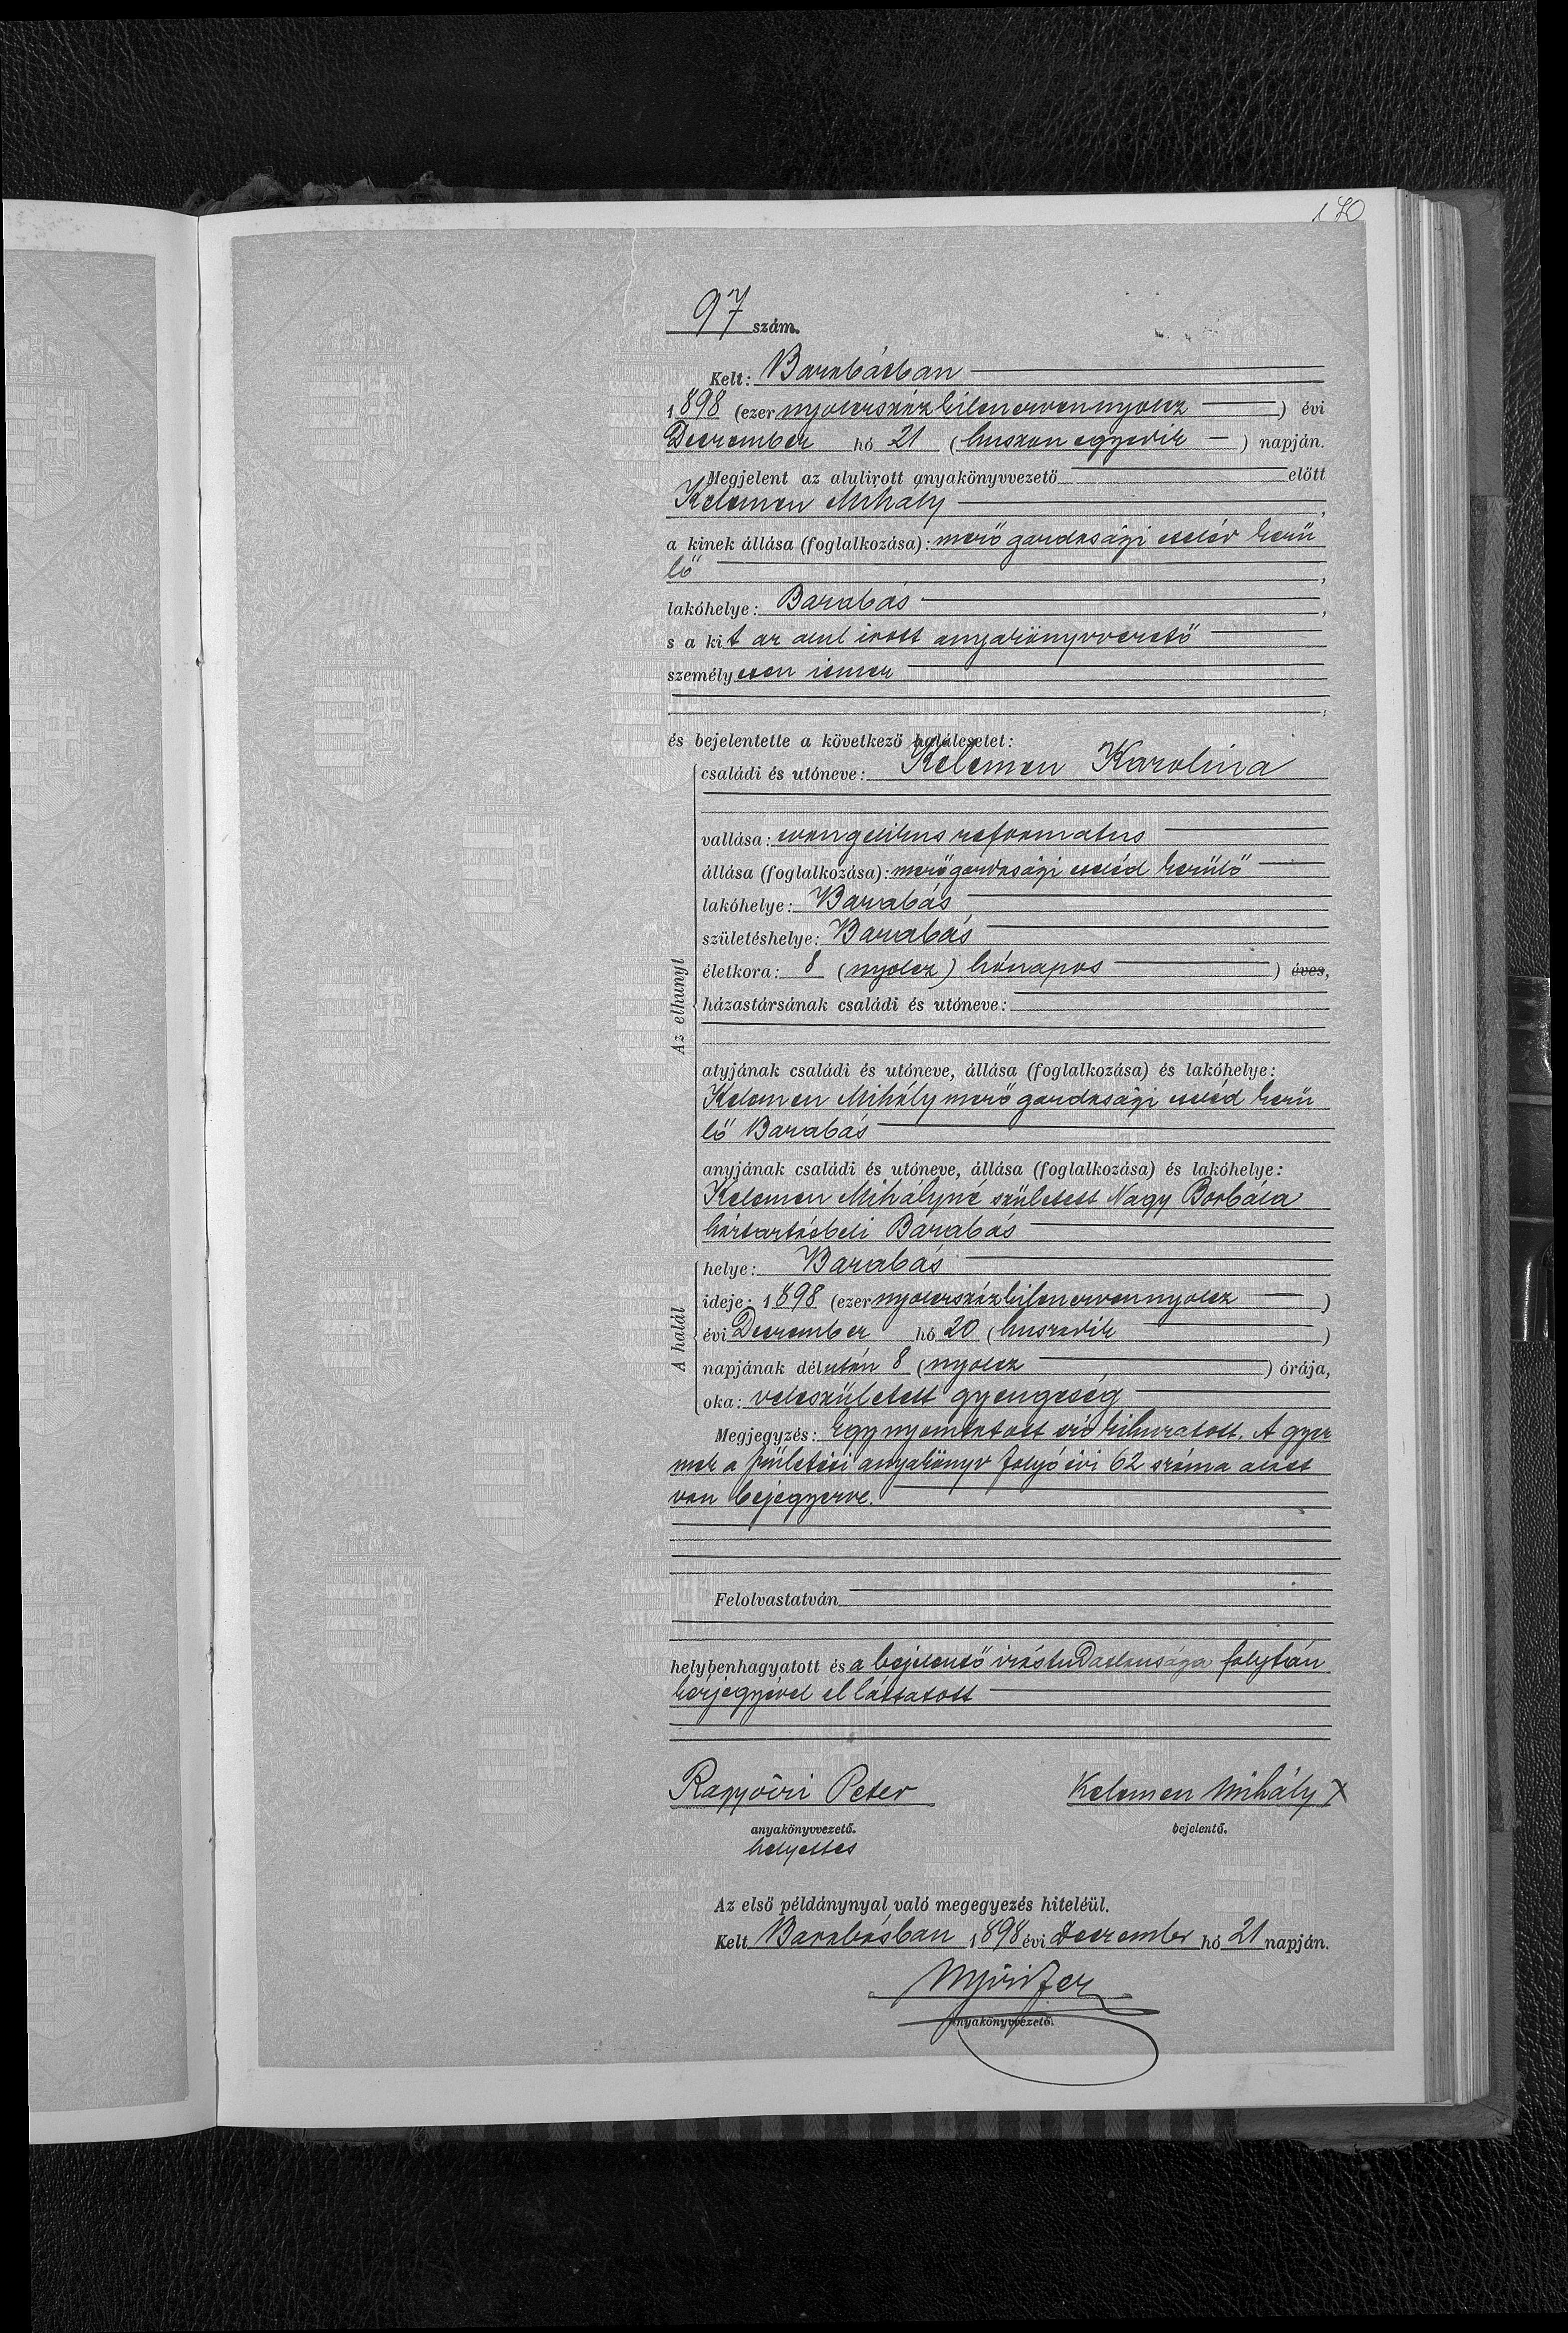 170
97 szám.
Kelt: Barabásban
1898 (ezer nyolczszázkilenczvennyolcz) évi
Deczember hó 21 (huszon egyedik) napján.
Megjelent az alulirott anyakönyvvezető előtt
Kelemen Mihály,
a kinek állása (foglalkozása): mező gazdasági cseléd kerü
lő,
lakóhelye: Barabás,
s a kit az alul irott anyakönyvvezető
személyesen ismer
és bejelentette a következő halálesetet:
Az elhunyt
családi és utóneve: Kelemen Karolina
vallása: evangelikus reformatus
állása (foglalkozása): mezőgazdasági cseléd kerülő
lakóhelye: Barabás
születéshelye: Barabás
életkora: 8 (nyolcz) hónapos ) éves,
házastársának családi és utóneve:
atyjának családi és utóneve, állása (foglalkozása) és lakóhelye:
Kelemen Mihály mező gazdasági cseléd kerü
lő Barabás
anyjának családi és utóneve, állása (foglalkozása) és lakóhelye:
Kelemen Mihályné született Nagy Borbála
háztartásbeli Barabás
A halál
helye: Barabás
ideje: 1898 (ezer nyolczszázkilenczvennyolcz)
évi Deczember hó 20 (huszadik)
napjának délután 8 (nyolcz) órája,
oka: veleszületett gyengeség
Megjegyzés: Egy nyomtatott szó kihuzatott. A gyer
mek a születési anyakönyv folyó évi 62 száma alatt
van bejegyezve.
Felolvastatván
helybenhagyatott és a bejelentő irástudatlansága folytán
kézjegyével el láttatott
Peter
anyakönyvvezető.
helyettes
Kelemen Mihály X
bejelentő.
Az első példánynyal való megegyezés hiteléül.
Kelt Barabásban 1898 évi Deczember hó 21 napján.
anyakönyvvezető.